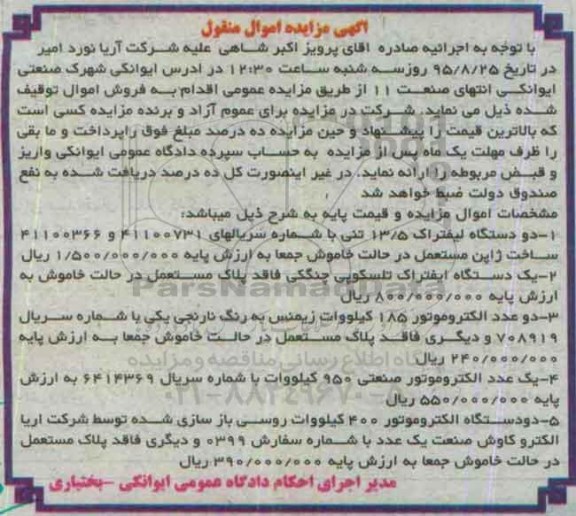 آگهی مزایده اموال منقول
با توجه به اجرائیه صادره آقای پرویز اکبر شاهی علیه شرکت آریا نورد امیر
در تاریخ ۹۵/۸/۲۵ روزسه شنبه ساعت ۱۲:۳۰ در ادرس ایوانکی شهرک صنعتی
ایوانکی انتهای صنعت ۱۱ از طریق مزایده عمومی اقدام به فروش اموال توقیف
شده ذیل می نماید. شرکت در مزایده برای عموم آزاد و برنده مزایده کسی است
که بالاترین قیمت را پیشنهاد و حین مزایده ده درصد مبلغ فوق راپرداخت و ما بقی
را ظرف مهلت یک ماه پس از مزایده به حساب سپرده دادگاه عمومی ایوانکی واریز
و قبض مربوطه را ارائه نماید. در غیر اینصورت کل ده درصد دریافت شده به نفع
صندوق دولت ضبط خواهد شد
مشخصات اموال مزایده و قیمت پایه به شرح ذیل میباشد:
۱-دو دستگاه لیفتراک ۱۳/۵ تنی با شماره سریالهای ۴۱۱۰۰۷۳۱ و ۴۱۱۰۰۳۶۶
ساخت ژاپن مستعمل در حالت خاموش جمعا به ارزش پایه ۱/۵۰۰/۰۰۰/۰۰۰ ریال
۲-یک دستگاه لیفتراک تلسکوپی جنگکی فاقد پلاک مستعمل در حالت خاموش به
ارزش پایه ۸۰۰/۰۰۰/۰۰۰ ریال
ParsNamadData
۳-دو عدد الکتروموتور ۱۸۵ کیلووات زیمنس به رنگ نارنجی یکی با شماره سریال
۷۰۸۹۱۹ و دیگری فاقد پلاک مستعمل در حالت خاموش جمعا به ارزش پایه
۲۴۰/۰۰۰/۰۰۰ ریال
پایگاه اطلاع رسانی مناقصه و مزایده
۴-یک عدد الکتروموتور صنعتی ۹۵۰ کیلووات با شماره سریال ۶۴۱۴۳۶۹ به ارزش
پایه ۵۵۰/۰۰۰/۰۰۰ ریال
۰۲۱-۸۸۳۴۹۶۷۰
۵-دودستگاه الکتروموتور ۴۰۰ کیلووات روسی باز سازی شده توسط شرکت اریا
الکترو کاوش صنعت یک عدد با شماره سفارش ۰۳۹۹ و دیگری فاقد پلاک مستعمل
در حالت خاموش جمعا به ارزش پایه ۳۹۰/۰۰۰/۰۰۰ ریال
مدیر اجرای احکام دادگاه عمومی ایوانکی -بختیاری